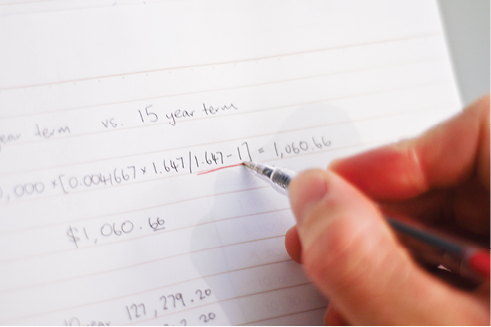 year term vs. 15 year term
0,000 * [0.0041667 * 1.647/1.647-1] = 1,060.66
$1,060.66
year 127,279.20
.20